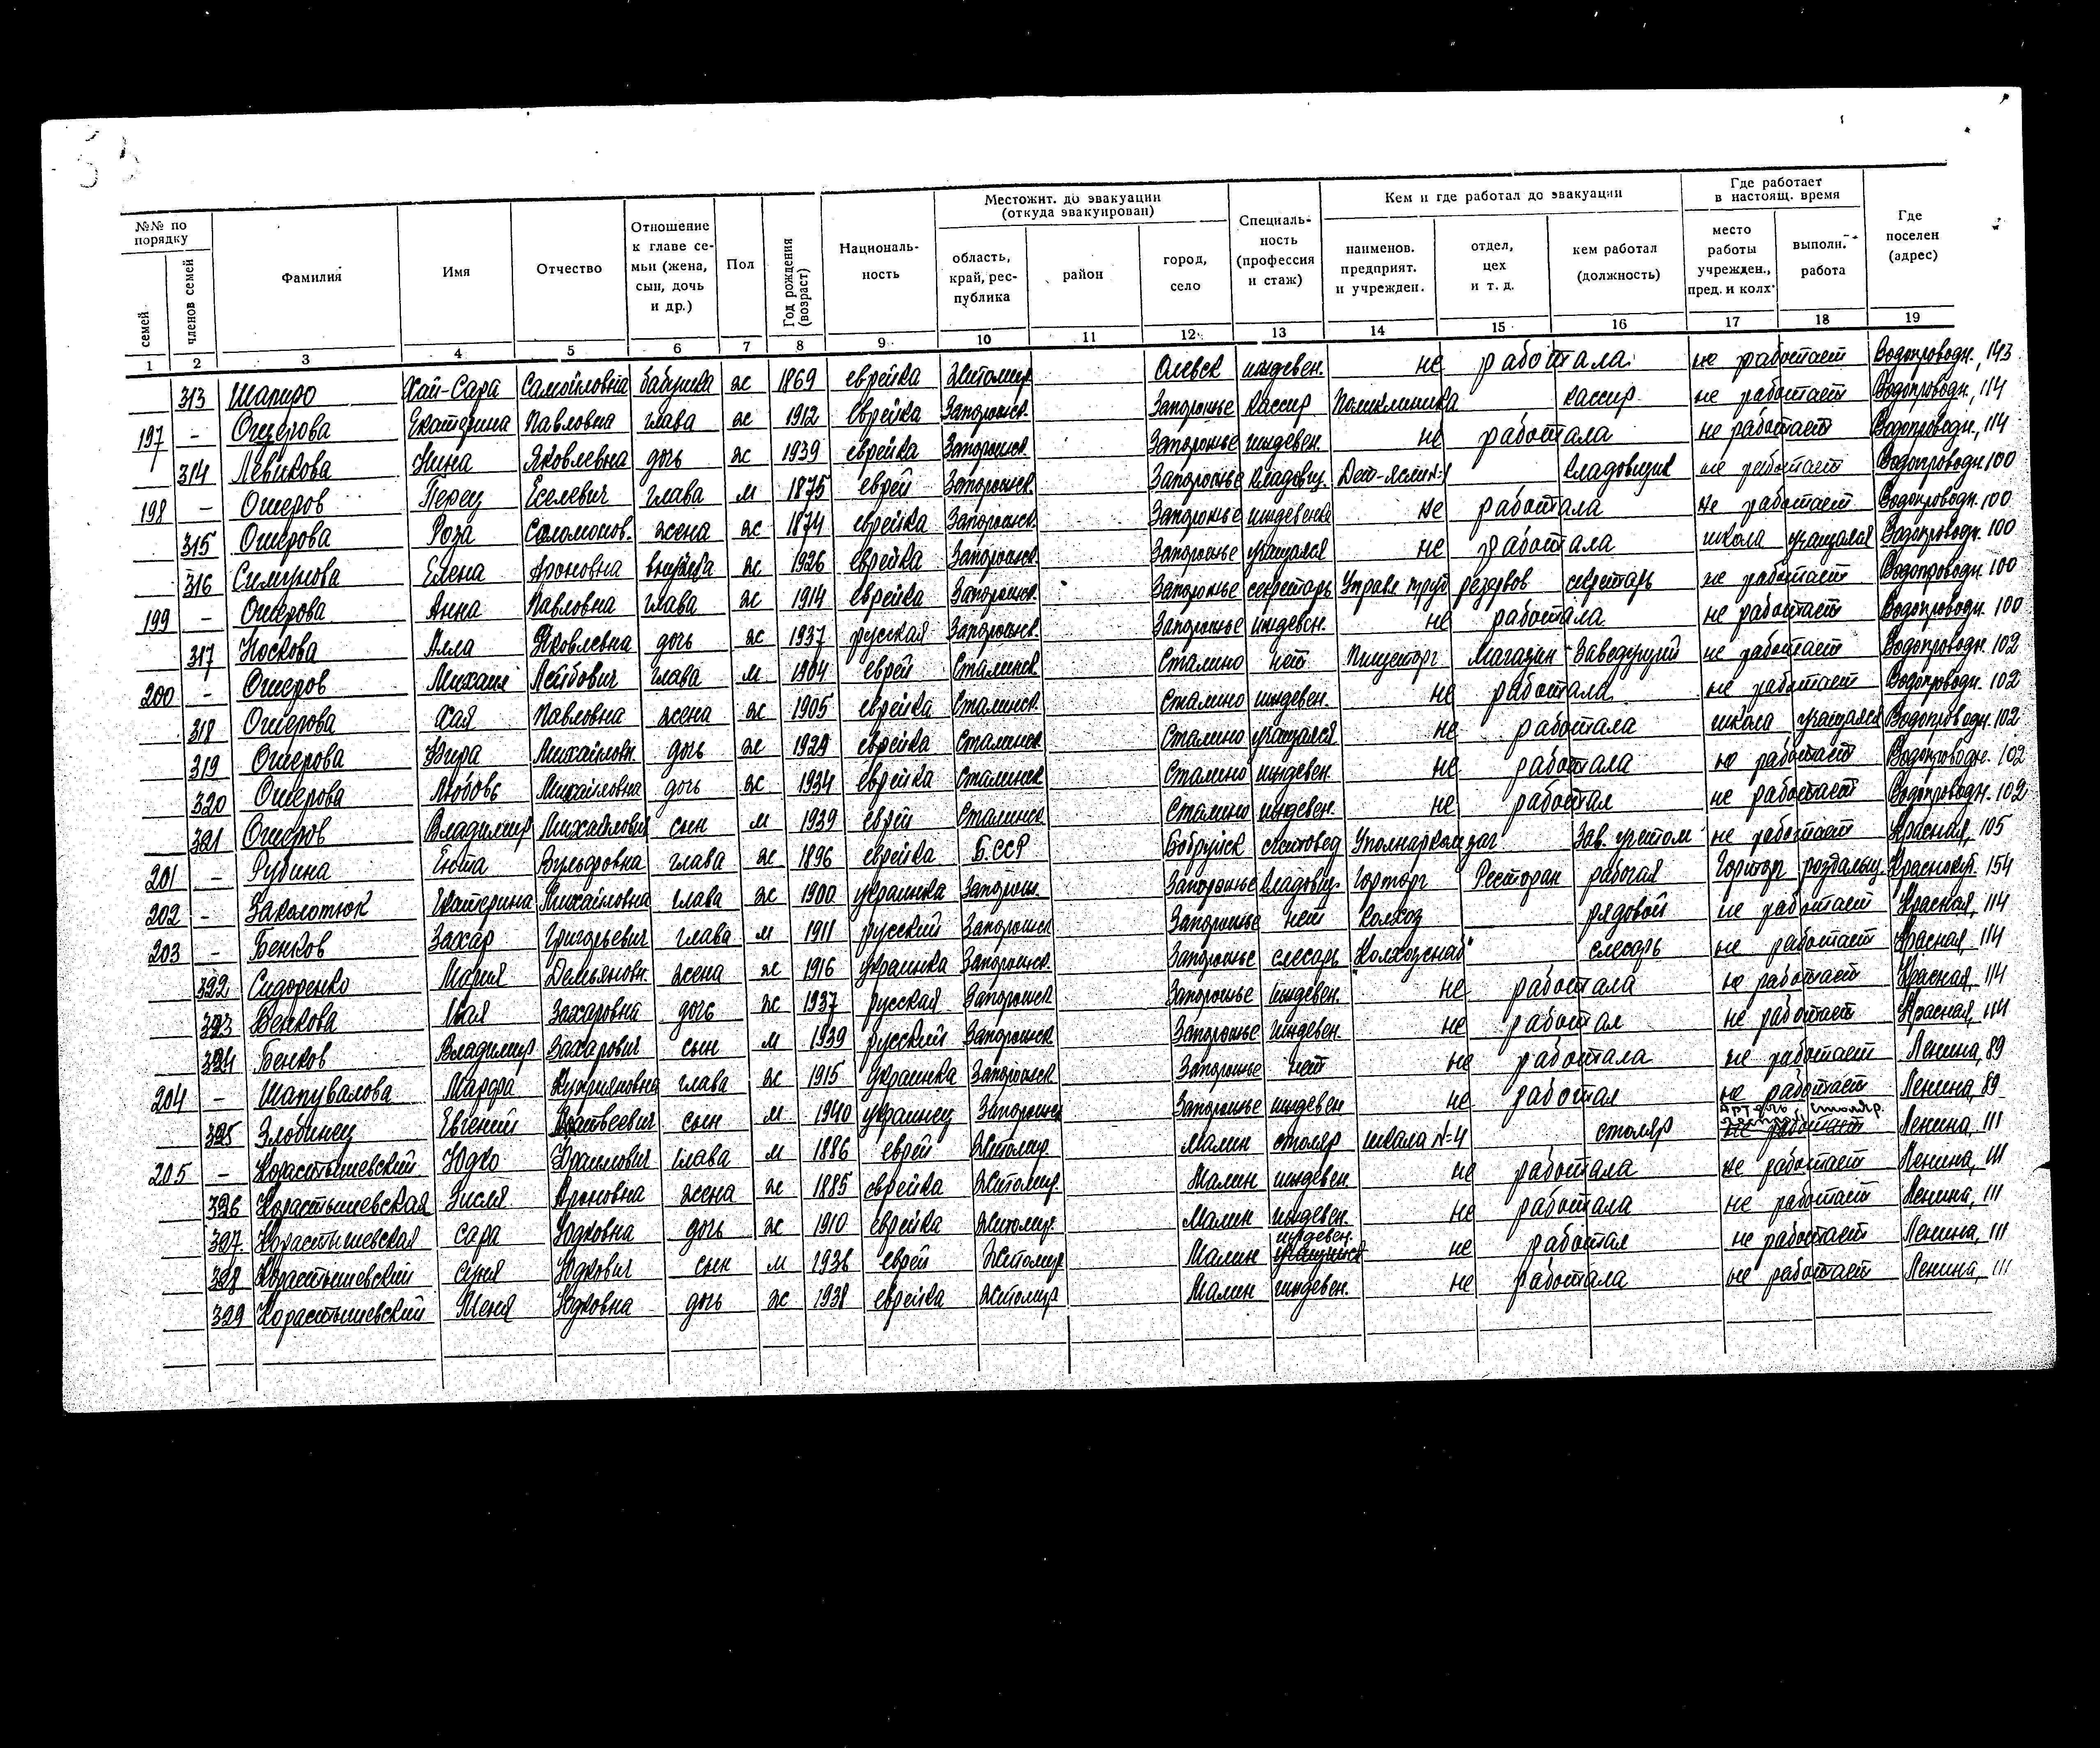 №№ по порядку
семей
членов семей
Фамилия
Имя
Отчество
Отношение к главе се- мьи (жена, сын, дочь и др.)
Пол
Год рождения (возраст)
Националь- ность
Местожит. до эвакуации (откуда эвакуирован)
область, край, рес- публика
район
город, село
Специаль- ность (профессия и стаж)
Кем и где работал до эвакуации
наименов. предприят. и учрежден.
отдел, цех и т. д.
кем работал (должность)
Где работает в настоящ. время
место работы учрежден., пред. и колх.
выполн. работа
Где поселен (адрес)
1 2 3 4 5 6 7 8 9 10 11 12 13 14 15 16 17 18 19
313 Шапиро Хай-Сара Самойловна бабушка ж 1869 еврейка Житомир. Олевск иждевен. не работала не работает Водопроводн., 143
197 - Ошерова Екатерина Павловна глава ж 1912 еврейка Запорожск. Запорожье кассир Поликлиника кассир не работает Водопроводн., 114
314 Левикова Нина Яковлевна дочь ж 1939 еврейка Запорожск. Запорожье иждевен. не работала не работает Водопроводн., 114
198 - Ошеров Перец Еселевич глава м 1875 еврей Запорожск. Запорожье кладовщ. кладовщик не работает Водопроводн. 100
315 Ошерова Роза Соломонов. жена ж 1874 еврейка Запорожск. Запорожье иждевена не работала не работает Водопроводн. 100
316 Симунова Елена Ароновна внучка ж 1926 еврейка Запорожск. Запорожье учащаяся не работала школа учащаяся Водопроводн. 100
199 - Ошерова Анна Павловна глава ж 1914 еврейка Запорожск. Запорожье секретарь Управл труд резервов секретарь не работает Водопроводн. 100
317 Носкова Алла Яковлевна дочь ж 1937 русская Запорожск. Запорожье иждевен. не работала не работает Водопроводн. 100
200 - Ошеров Михаил Лейбович глава м 1904 еврей Сталинск. Сталино нет Пищеторг Магазин Заведующий не работает Водопроводн. 102
318 Ошерова Хая Павловна жена ж 1905 еврейка Сталинск. Сталино иждевен. не работала не работает Водопроводн. 102
319 Ошерова Михайловн. дочь ж 1929 еврейка Сталинск Сталино учащаяся не работала школа учащаяся Водопроводн. 102
320 Ошерова Любовь Михайловна дочь ж 1934 еврейка Сталинск Сталино иждевен. не работала не работает Водопроводн. 102
321 Ошеров Владимир Михайлович сын м 1939 еврей Сталинск Сталино иждевен. не работал не работает Водопроводн. 102
201 - Рубина Вульфовна глава ж 1896 еврейка Б.ССР Бобруйск Уполнаркомзаг Зав. учетом не работает Красная, 105
202 - Заколотюк Екатерина Михайловна глава ж 1900 украинка Запорож. Запорожье кладовщ. Горторг Ресторан рабочая Горторг 154
203 - Бенков Захар Григорьевич глава м 1911 русский Запорожск Запорожье нет колхоз рядовой не работает Красная, 114
322 Сидоренко Мария Демьяновн. жена ж 1916 украинка Запорожск. Запорожье слесарь "Колхозснаб" слесарь не работает Красная, 114
323 Бенкова Мая Захаровна дочь ж 1937 русская Запорожск Запорожье иждевен. не работала не работает Красная, 114
324 Бенков Владимир Захарович сын м 1939 русский Запорожск Запорожье иждевен. не работал не работает Красная, 114
204 - Шапувалова Марфа глава ж 1915 украинка Запорожск Запорожье нет не работала не работает Ленина, 89
325 Злобинец Евгений Матвеевич сын м 1940 украинец Запорожск Запорожье иждевен не работал не работает Ленина, 89
205 - Корастышевский Юдко Сраилович глава м 1886 еврей Житомир. Малин столяр школа №4 столяр Артель столяр. не работает Ленина, 111
326 Корастышевская Зисля Ароновна жена ж 1885 еврейка Житомир. Малин иждевен не работала не работает Ленина, 111
327. Корастышевская Сара Юдковна дочь ж 1910 еврейка Житомир. Малин иждевен. не работала не работает Ленина, 111
328 Корастышевский Юдкович сын м 1936 еврей Житомир Малин иждевен. не работал не работает Ленина, 111
329 Корастышевский Юдковна дочь ж 1938 еврейка Житомир Малин иждевен. не работала не работает Ленина, 111